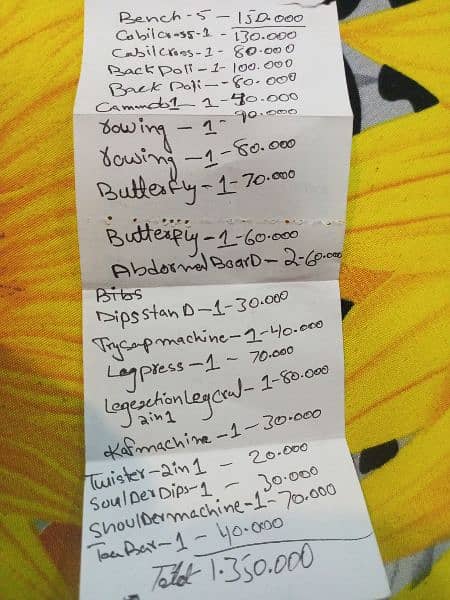 Bench-5 - 150.000
Cabilcross-1 - 130.000
Cabilcross-1- 80.000
Back Poli-1- 100.000
Back Poli--80.000
1-90.000
rowing - 1- 90.000
rowing -1-80.000
Butterfly-1-70.000
Butterfly-1-60.000
AbdormalBoarD-2-60.000
Bibs
DipsstanD-1-30.000
Trysapmachine-1-40.000
Legpress-1 - 70.000
LegexctionLegcrul- 1-80.000
2in1
Kafmachine-1-30.000
Twister-2in1 - 20.000
SoulDerDips-1 - 30.000
ShoulDermachine-1-70.000
Bar-1 - 40.000
Total 1.350.000